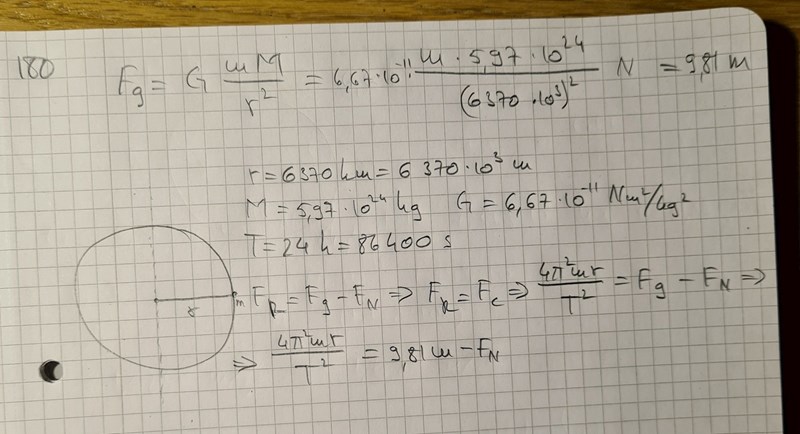 180 F_g = G \frac{mM}{r^2} = 6,67·10^{-11}·\frac{m·5,97·10^{24}}{(6370·10^3)^2} N = 9,81 m
r = 6370 km = 6 370·10^3 m
M = 5,97·10^{24} kg G = 6,67·10^{-11} Nm^2/kg^2
T = 24 h = 86400 s
r m F_R = F_g − F_N ⇒ F_R = F_c ⇒ \frac{4π^2mr}{T^2} = F_g − F_N ⇒
⇒ \frac{4π^2mr}{T^2} = 9,81 m − F_N